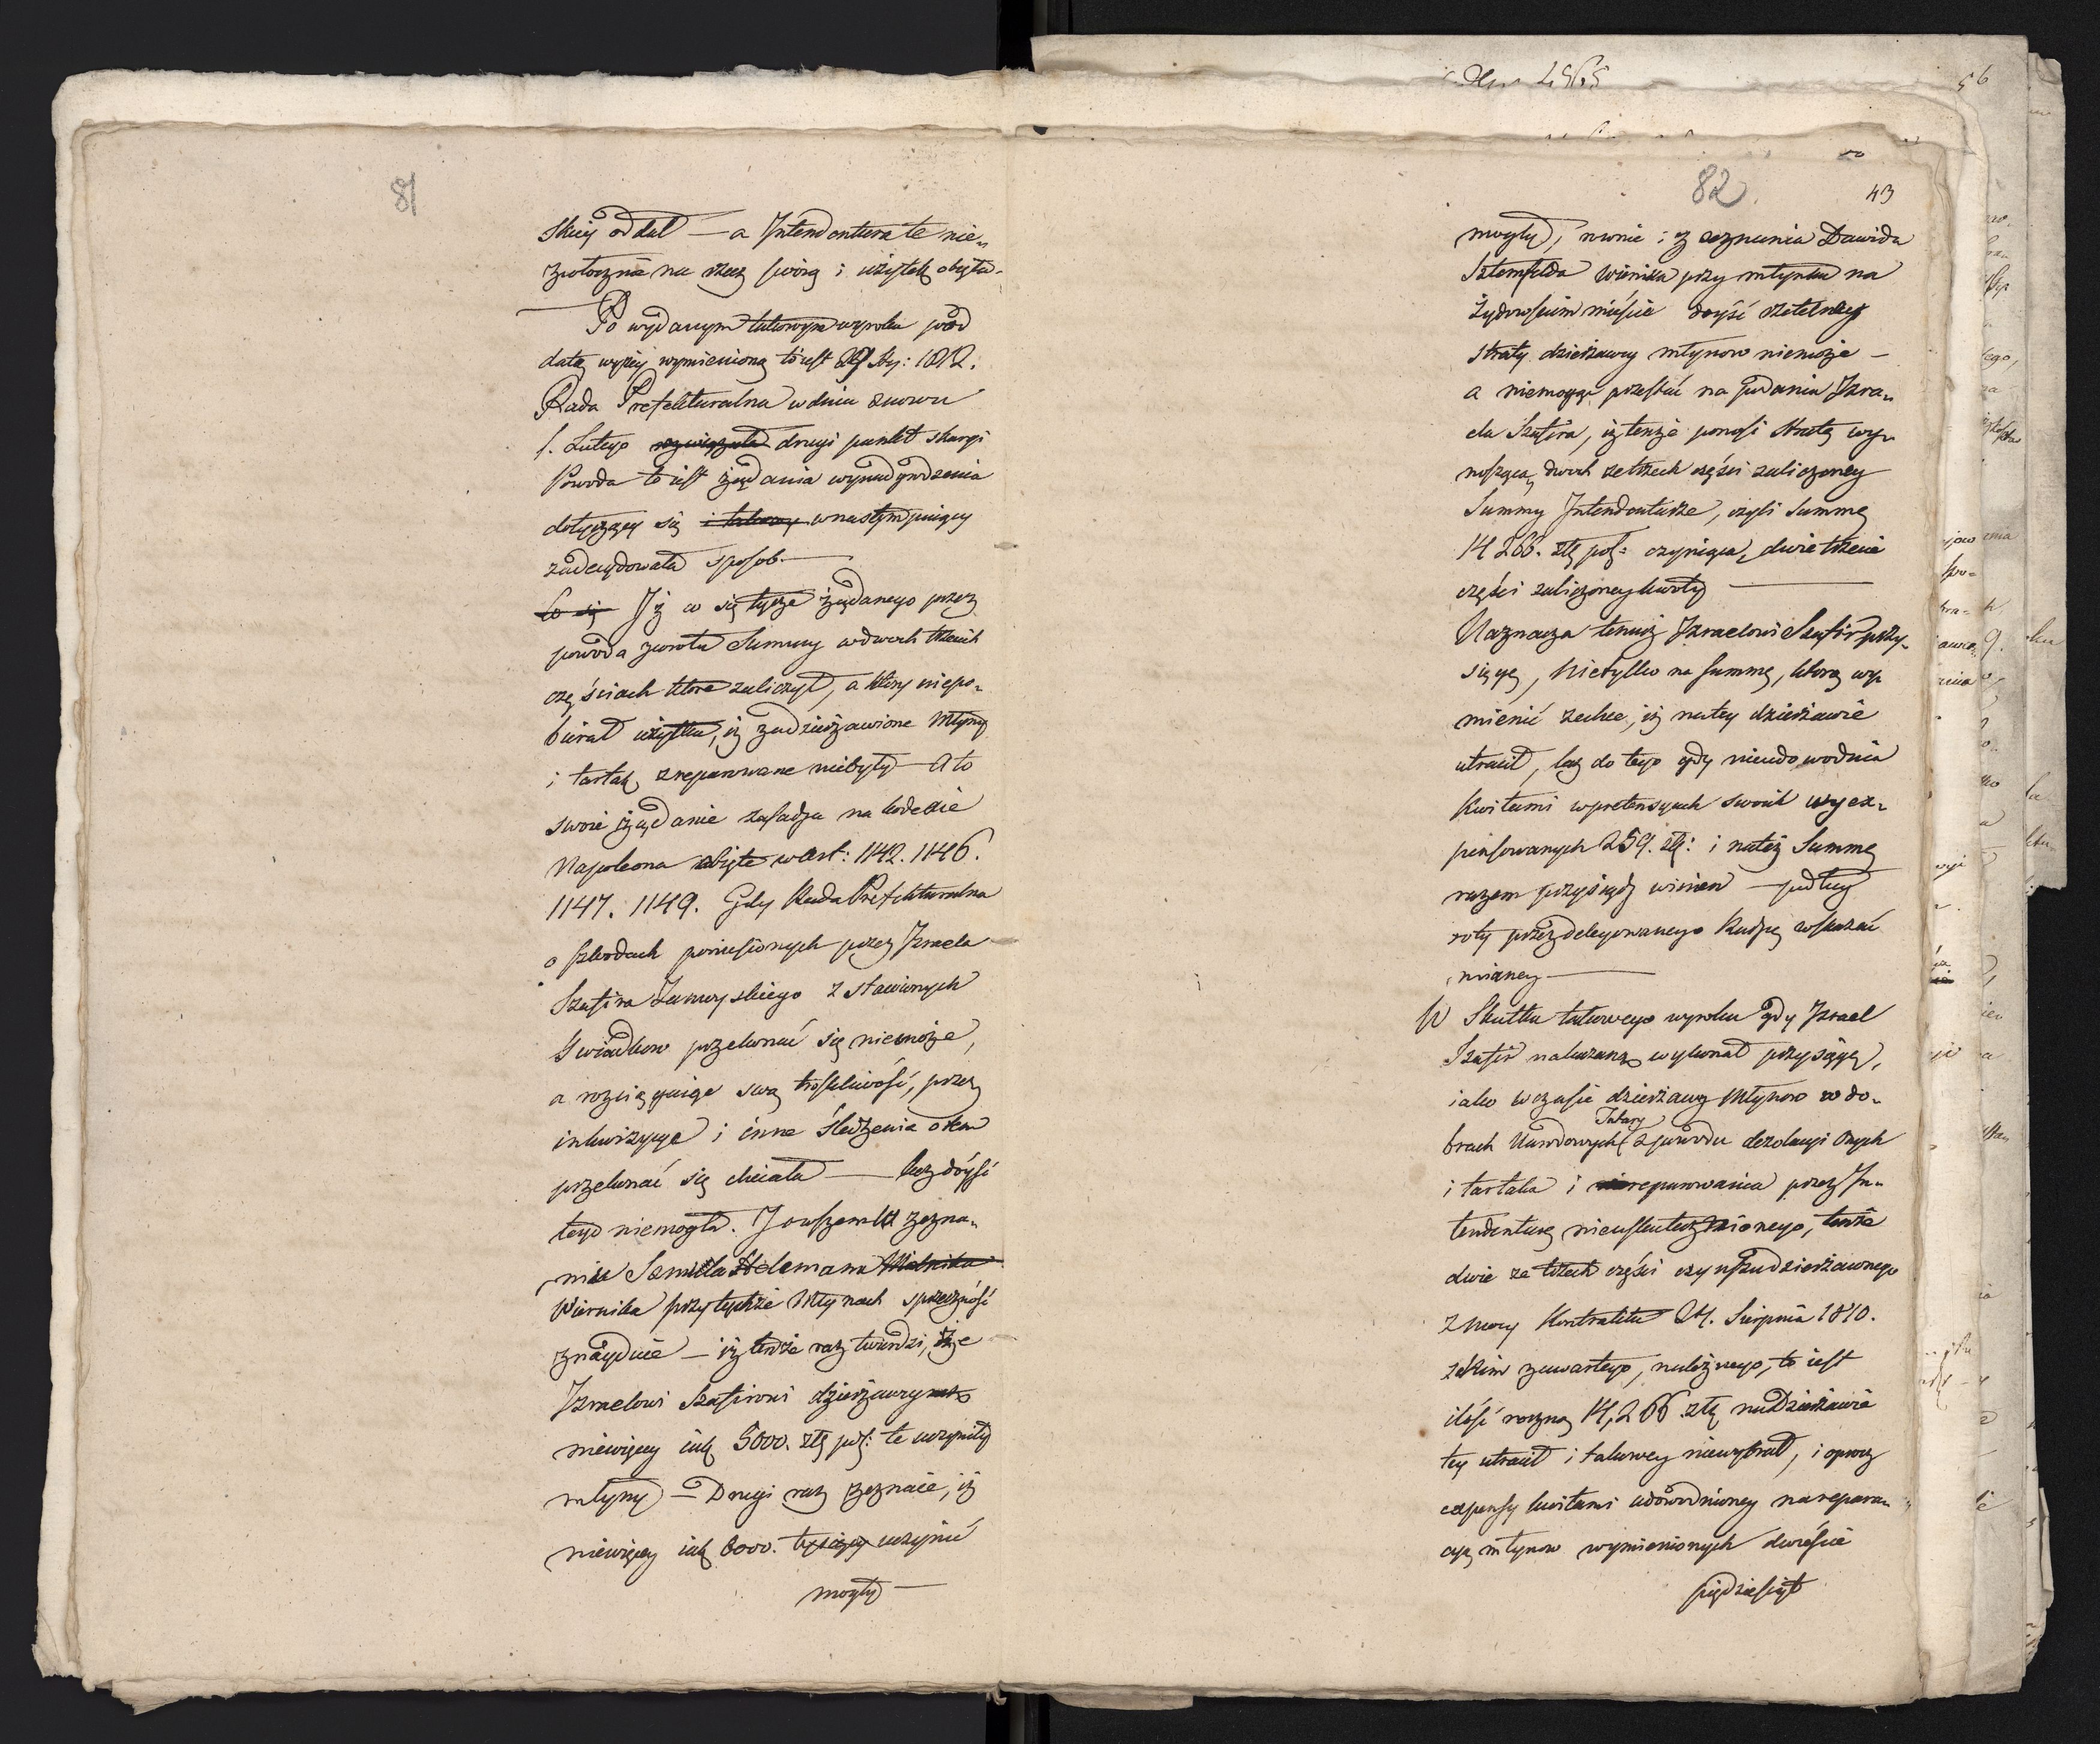 81
skiey oddał — a Intendentura te nie-
zwłocznie na rzecz swoią i użytek obięła.
Po wydanym takowym wyroku pod
datą wyżey wymienioną to iest Sty: 1812.
Rada Prefekturalna w dniu znowu
1. Lutego rozwiązała drugi punkt skargi
Powoda to iest żądania wynadgrodzenia
dotyczący się w następuiący
zadecydowała sposob. —
Co się Iż co się tycze żądanego przez
powoda zwrotu Summy w dwoch trzecich
częściach które zaliczył, a który niepo-
bierał użytku, iż zadzierżawione Młyny
i tartak zreparowane niebyły — A to
swoie żądanie zasadza na kodexie
Napoleona obięte w art: 1142. 1146.
1147. 1149. Gdy Rada Prefekturalna
o szkodach poniesionych przez Izraela
Szafira Zamoyskiego z stawionych
Swiadkow przekonać się niemoże,
a rozciągaiąc swą troskliwość, przez
inkwizycye i inne śledzenia o tem
przekonać się chciała — lecz dóyść
tego niemogła. I owszem w zezna-
niu Samuela Edelemana Młelnika
Wiernika przy tychże Młynach sprzeczność
znayduie — iż tenże raz twierdzi, iże
Izraelowi Szafirowi dzierżawcy
niewięcey iak 5000. złł pol: te uczyniły
młyny — Drugi raz zeznaie, iż
niewięcey iak 6000. tysięcy uczynić
mogły —
82
43
mogły, równie i z zeznania Dawida
Szternfelda wiernika przy młynku na
żydowskim mieście doyść rzetelney
straty dzierżawcy młynow niemoże —
a niemogąc przestać na podaniu Izra-
ela Szafira, iż tenże ponosi stratę wy-
noszącą dwoch ze trzech części zaliczoney
Summy Intendenturze, czyli Summę
14 266. złł pol: czyniącą, dwie trzecie
części zaliczoney kwoty —
Naznacza temuż Izraelowi Szafir przy-
sięgę, nietylko na summę, którą wy-
mienić zechce, iż na tey dzierżawie
utracił, lecz do tego gdy nieudowodnia
kwitami w pretensyach swoich wyex-
pensowanych 259. złł: i na też Summę
razem przysiądz winien — podług
roty przez delegowanego Radzcę wskazać
mianey —
W Skutku takowego wyroku gdy Izrael
Szafir nakazaną wykonał przysięgę,
iako w czasie dzierżawy Młynow w do-
brach Narodowych z powodu dezolacyi onych
i tartaka i reparowania przez In-
tendenturę nieuskutecznionego, tenże
dwie ze trzech części czynszu dzierżawnego
z mocy Kontraktu 24. Sierpnia 1810.
z kim zawartego, należnego, to iest
ilość roczną 14,266 złł na Dzierżawie
tey utracił i takowey niewybrał, i oprocz
expensy kwitami udowodnioney na repera-
cyą młynow wymienionych dwieście
pięćdziesiąt